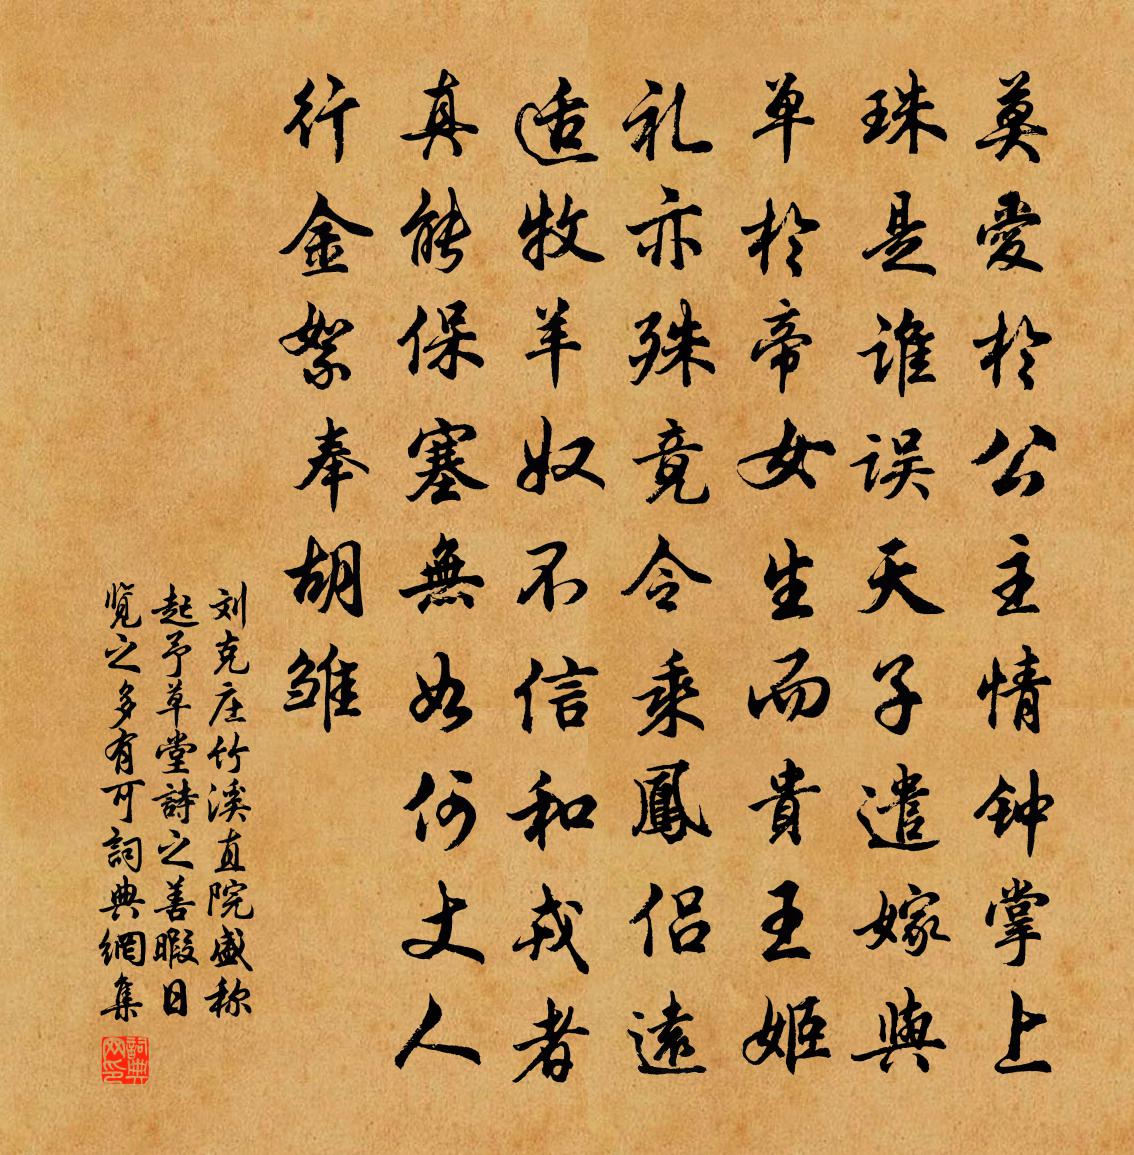 莫愛於公主情钟掌上
珠是谁误天子遣嫁與
单於帝女生而貴王姬
礼亦殊竟令乘鳳侣遠
适牧羊奴不信和戎者
真能保塞無如何丈人
行金絮奉胡雏
刘克庄竹溪直院盛称
起予草堂詩之善暇日
览之多有可詞典網集
詞典
网印